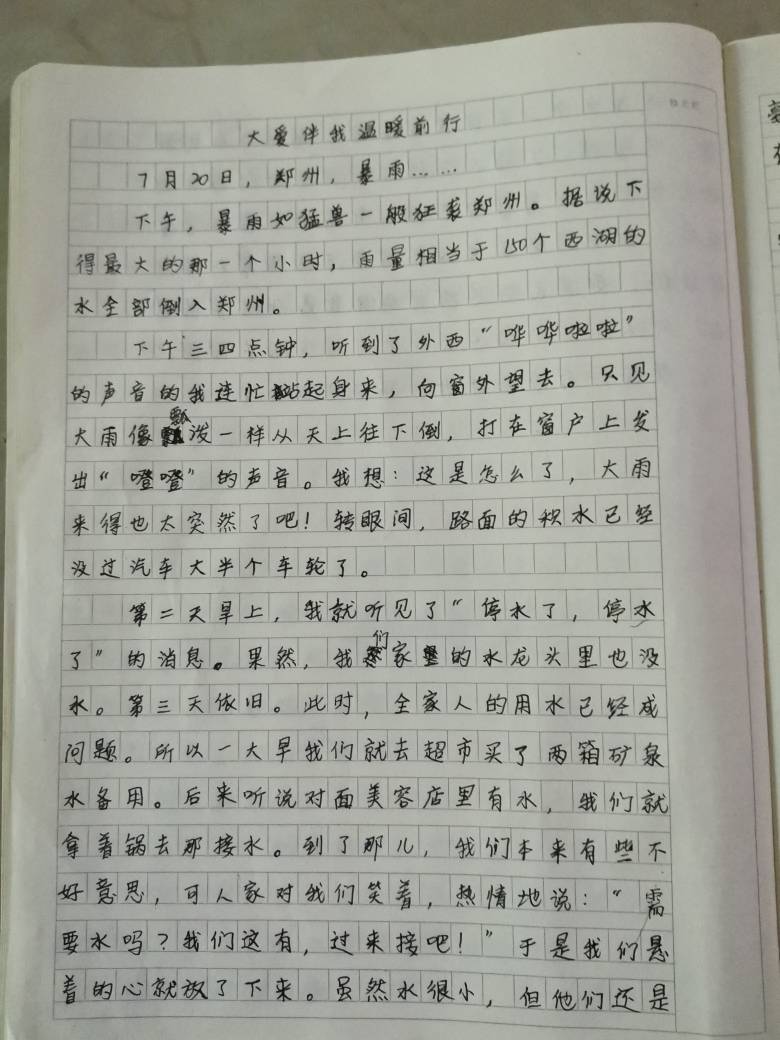 大爱伴我温暖前行
7月20日，郑州，暴雨……
下午，暴雨如猛兽一般狂袭郑州。据说下
得最大的那一个小时，雨量相当于150个西湖的
水全部倒入郑州。
下午三四点钟，听到了外西“哗哗啦啦”
的声音的我连忙站起身来，向窗外望去。只见
大雨像瓢泼一样从天上往下倒，打在窗户上发
出“噔噔”的声音。我想：这是怎么了，大雨
来得也太突然了吧！转眼间，路面的积水已经
没过汽车大半个车轮了。
第二天早上，我就听见了“停水了，停水
了”的消息。果然，我们家的水龙头里也没
水。第三天依旧。此时，全家人的用水已经成
问题。所以一大早我们就去超市买了两箱矿泉
水备用。后来听说对面美容店里有水，我们就
拿着锅去那接水。到了那儿，我们本来有些不
好意思，可人家对我们笑着，热情地说：“需
要水吗？我们这有，过来接吧！”于是我们悬
着的心就放了下来。虽然水很小，但他们还是